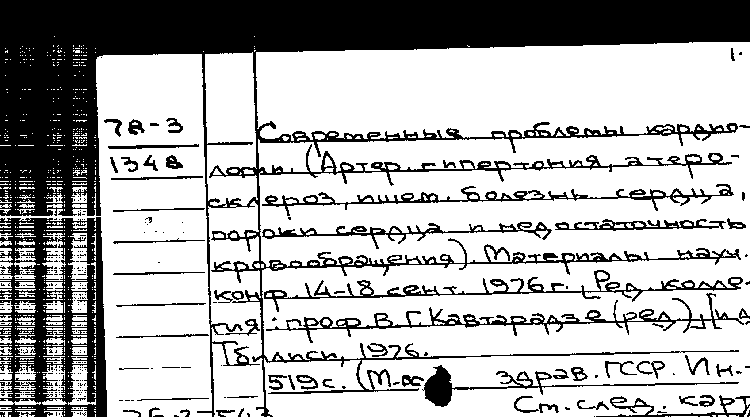 1.
78-3
Современныя проблемы кардио-
1348
логии. (Артер. гипертония, атеро-
склероз, ишем. болезнь сердца,
пороки сердца и недостаточность
кровообращения). Материалы науч.
конф. 14-18 сент. 1976 г. [Ред. колле-
гия: проф. В.Г. Кавтарадзе (ред.)] [и д
Тбилиси, 1976.
519с. (М-во здрав. ГССР. Ин-
См. след. карт